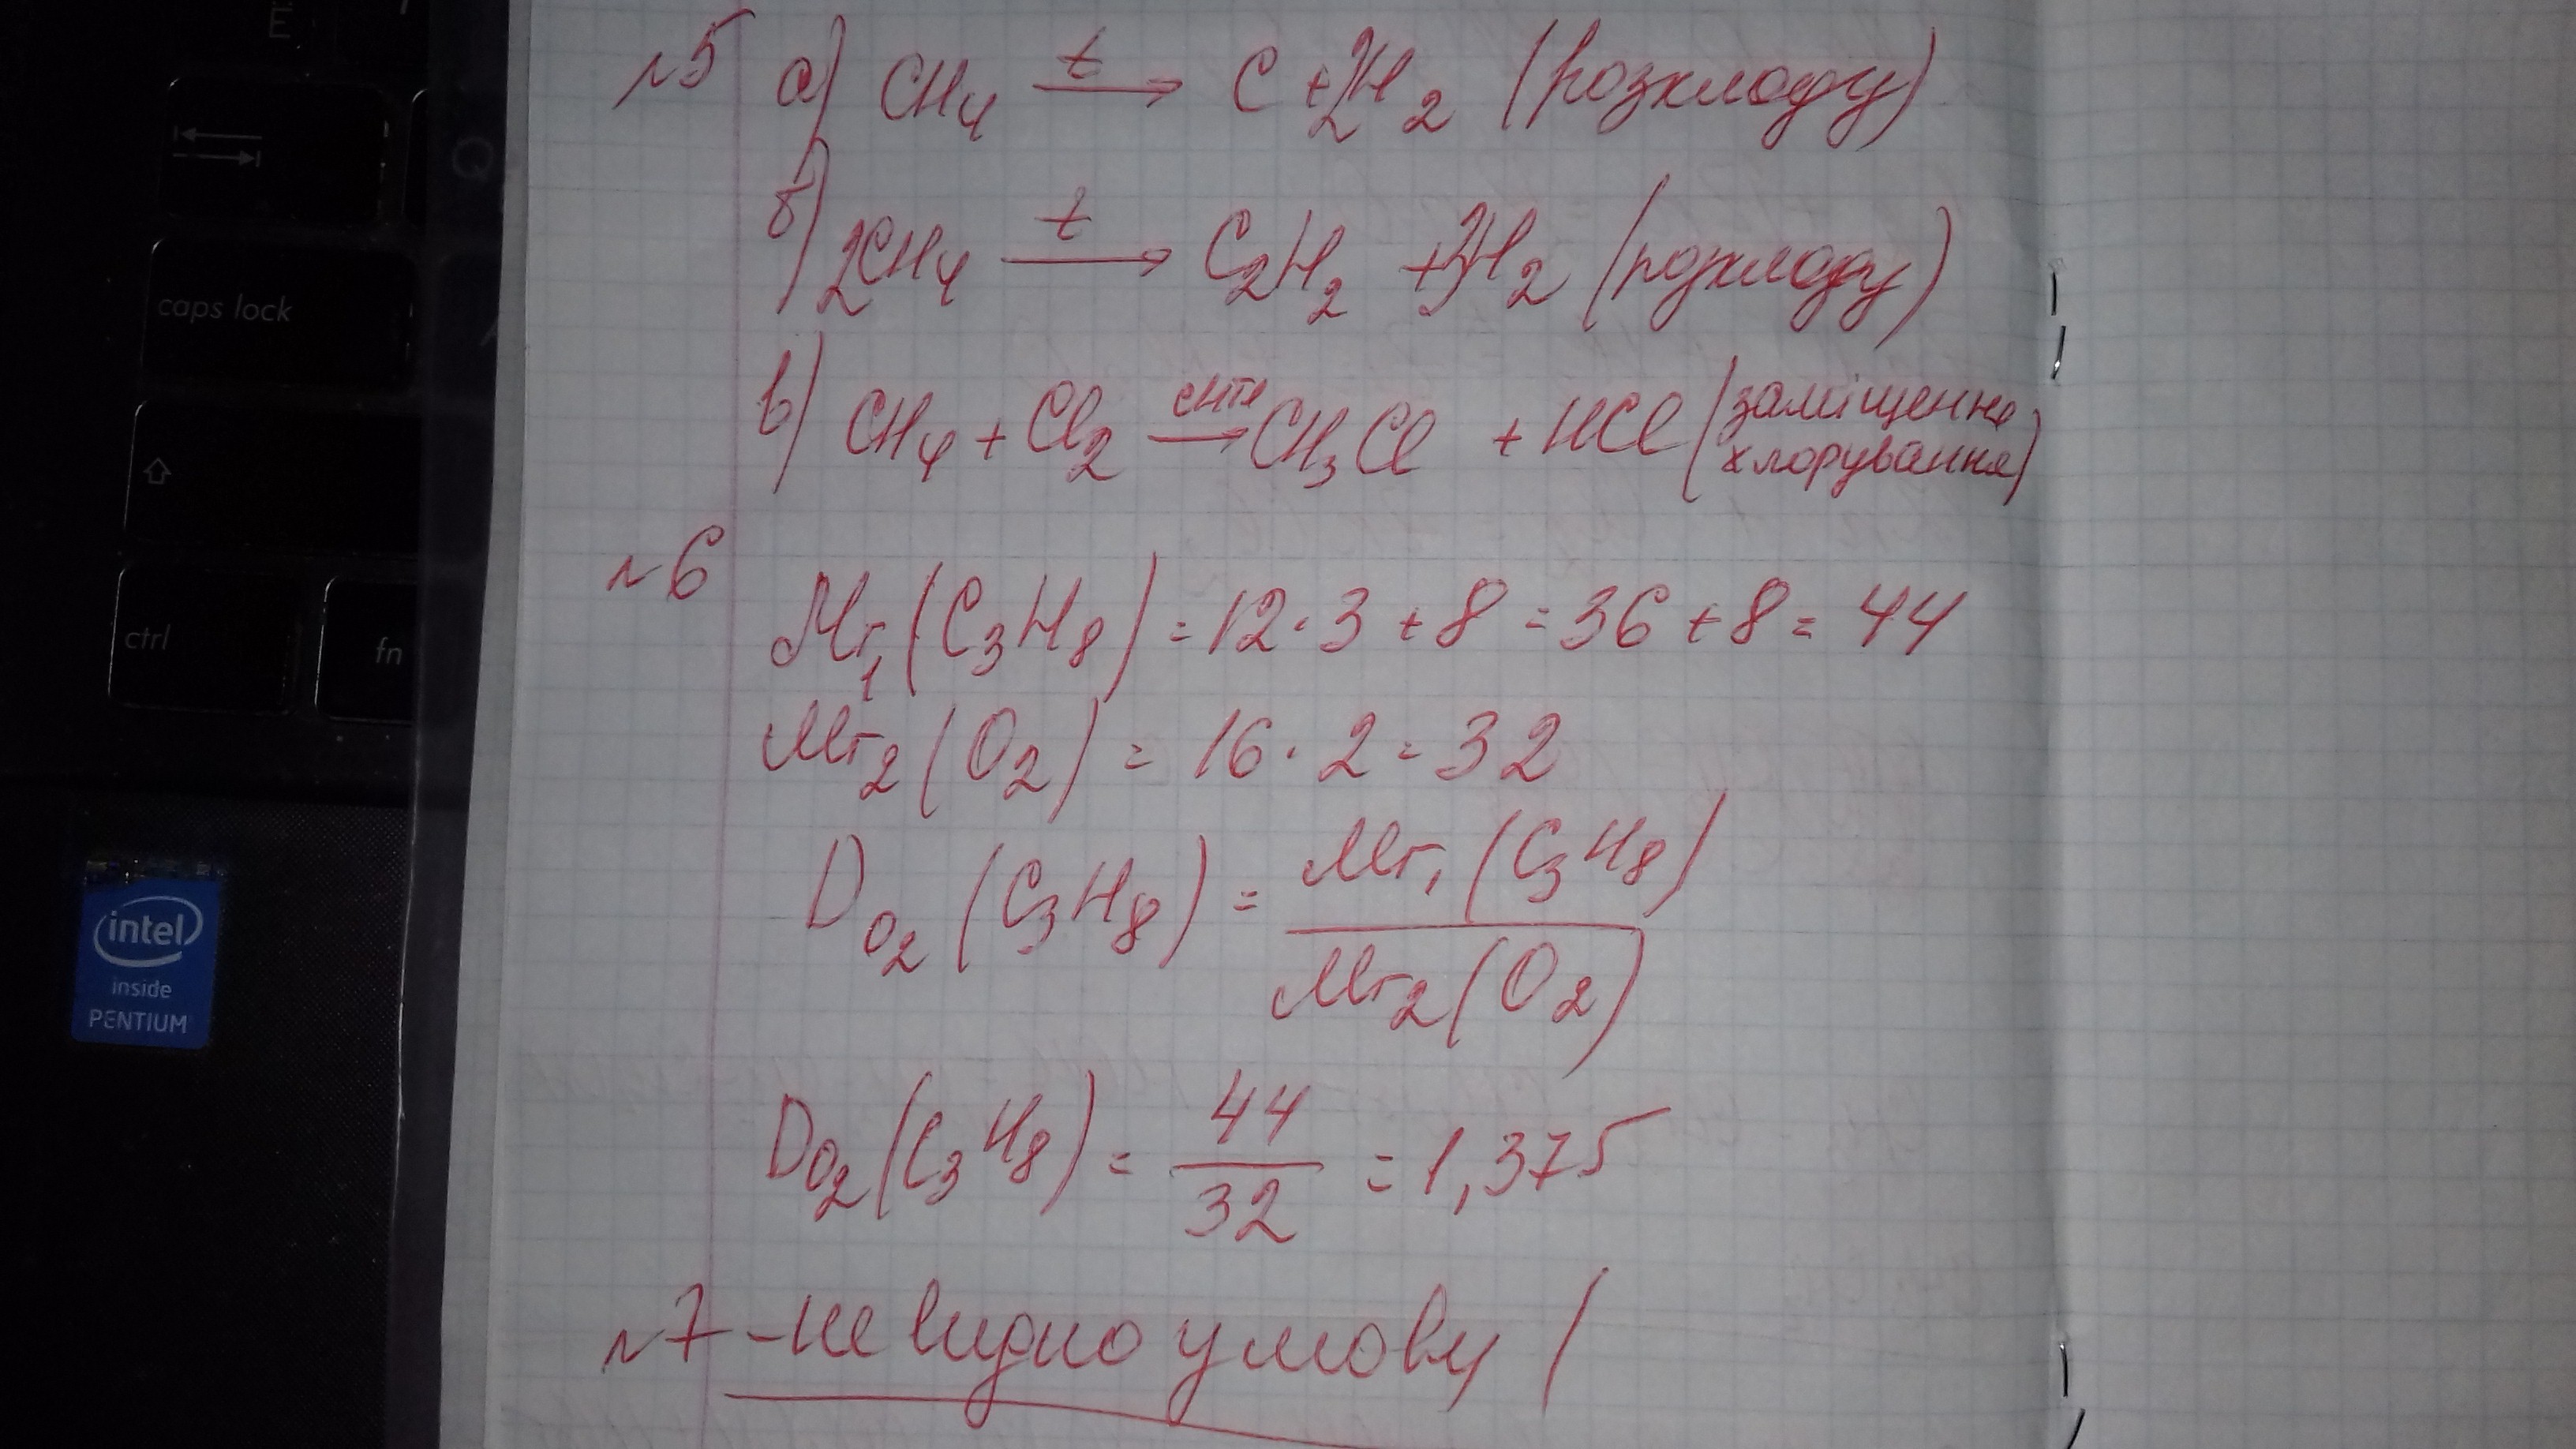 E
Q
caps lock
ctrl
fn
intel
inside
PENTIUM
№5 а) CH₄ →ᵗ C + 2H₂ (розкладу)
б) 2CH₄ →ᵗ C₂H₂ + 3H₂ (розкладу)
в) CH₄ + Cl₂ → CH₃Cl + HCl (заміщення
хлорування)
№6
Mr₁(C₃H₈) = 12·3 + 8 = 36 + 8 = 44
Mr₂(O₂) = 16·2 = 32
D_O₂(C₃H₈) = Mr₁(C₃H₈) / Mr₂(O₂)
D_O₂(C₃H₈) = 44 / 32 = 1,375
№7 – не видно умову (